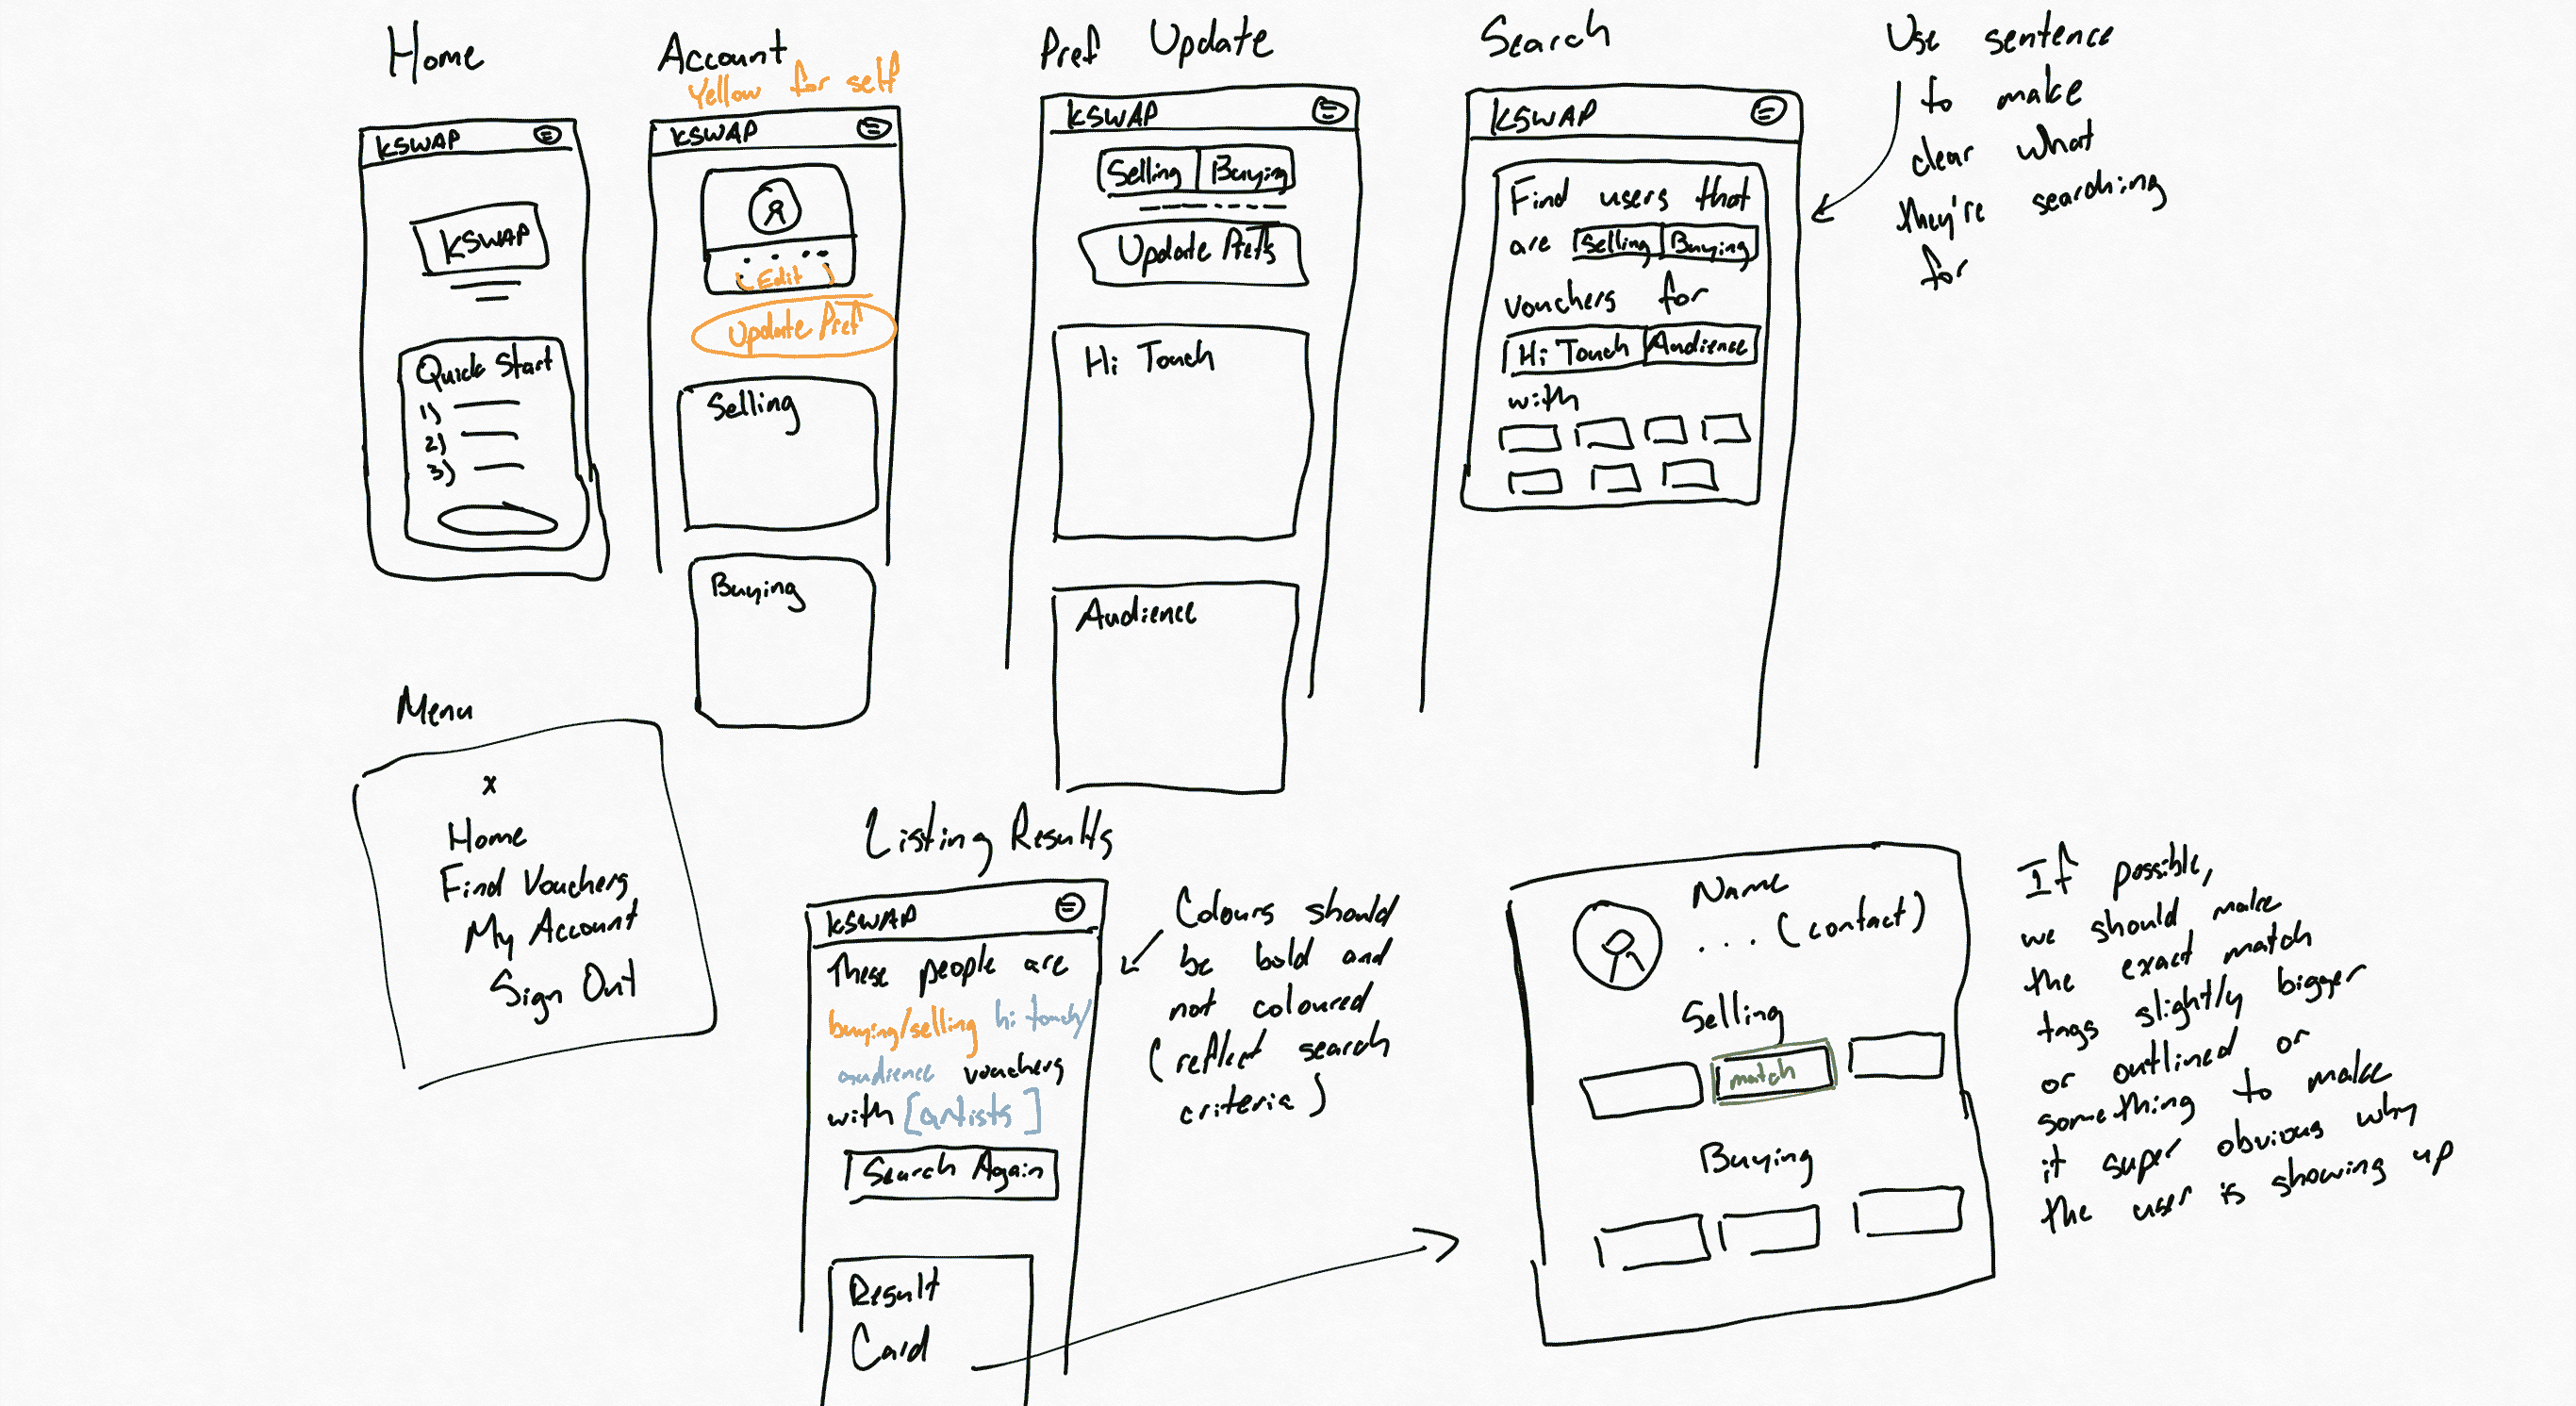 Home
KSWAP
KSWAP
Quick Start
1)
2)
3)
Account
Yellow for self
KSWAP
(Edit)
Update Pref
Selling
Buying
Pref Update
KSWAP
Selling Buying
Update Prefs
Hi Touch
Audience
Search
KSWAP
Find users that
are Selling Buying
vouchers for
Hi Touch Audience
with
Use sentence
to make
clear what
they're searching
for
Menu
x
Home
Find Vouchers
My Account
Sign Out
Listing Results
KSWAP
These people are
buying/selling hi touch/
audience vouchers
with [artists]
Search Again
Result
Card
Colours should
be bold and
not coloured
(reflect search
criteria)
Name
... (contact)
Selling
match
Buying
If possible,
we should make
the exact match
tags slightly bigger
or outlined or
something to make
it super obvious why
the user is showing up